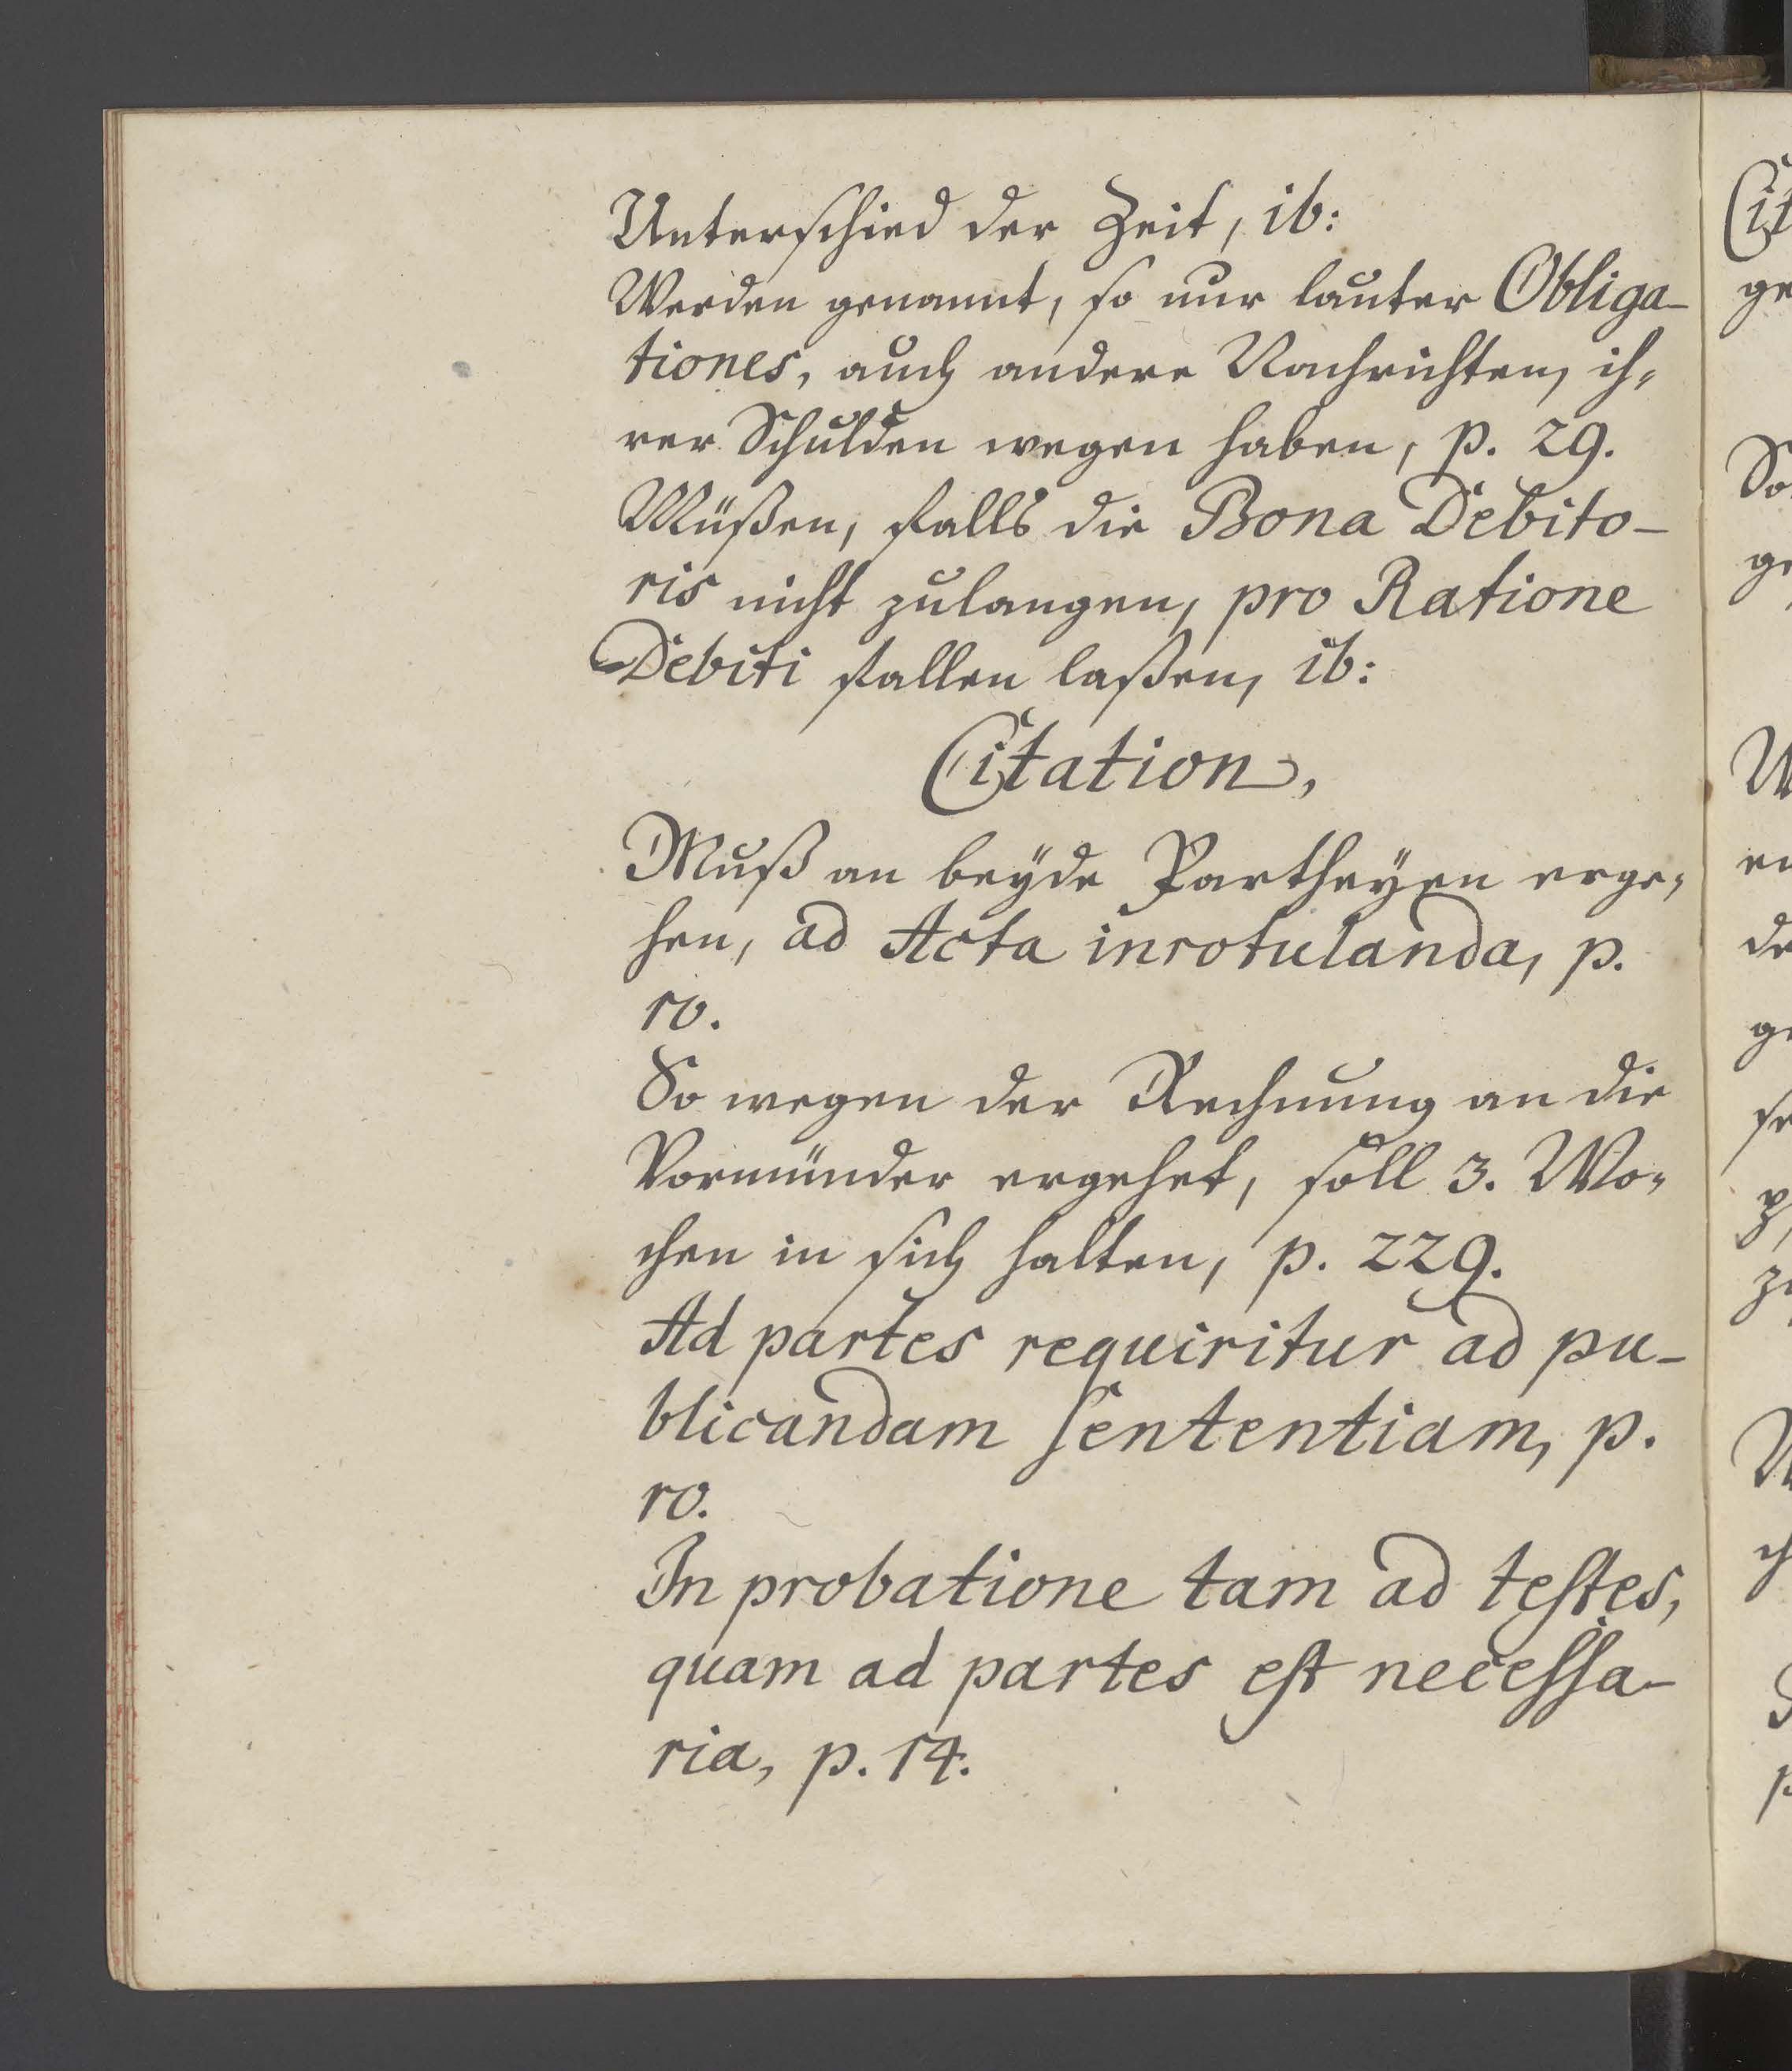 Unterschied der Zeit, ib:
Werden genannt, so nur lauter Obliga-
tiones, auch andere Nachrichten, ih-
rer Schulden wegen haben, p. 29.
Müßen, falls die Bona Debito-
ris nicht zulangen, pro Ratione
Debiti fallen laßen, ib:
Citation,
Muß an beyde Partheyen erge-
hen, ad Acta inrotulanda, p.
10.
So wegen der Rechnung an die
Vormünder ergehet, soll 3. Wo-
chen in sich halten, p. 229.
Ad partes requiritur ad pu-
blicandam sententiam, p.
10.
In probatione tam ad testes,
quam ad partes est necessa-
ria, p. 14.